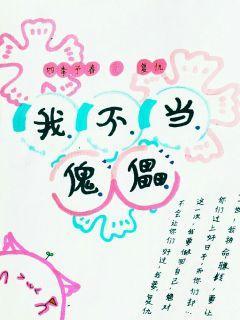 四季予春 复仇
我不当
傀儡
世，我拼命赚钱，要让
你们过上好日子，而你们却…
这一次，我要做回自己，绝对
不会让你们好过，我要复仇